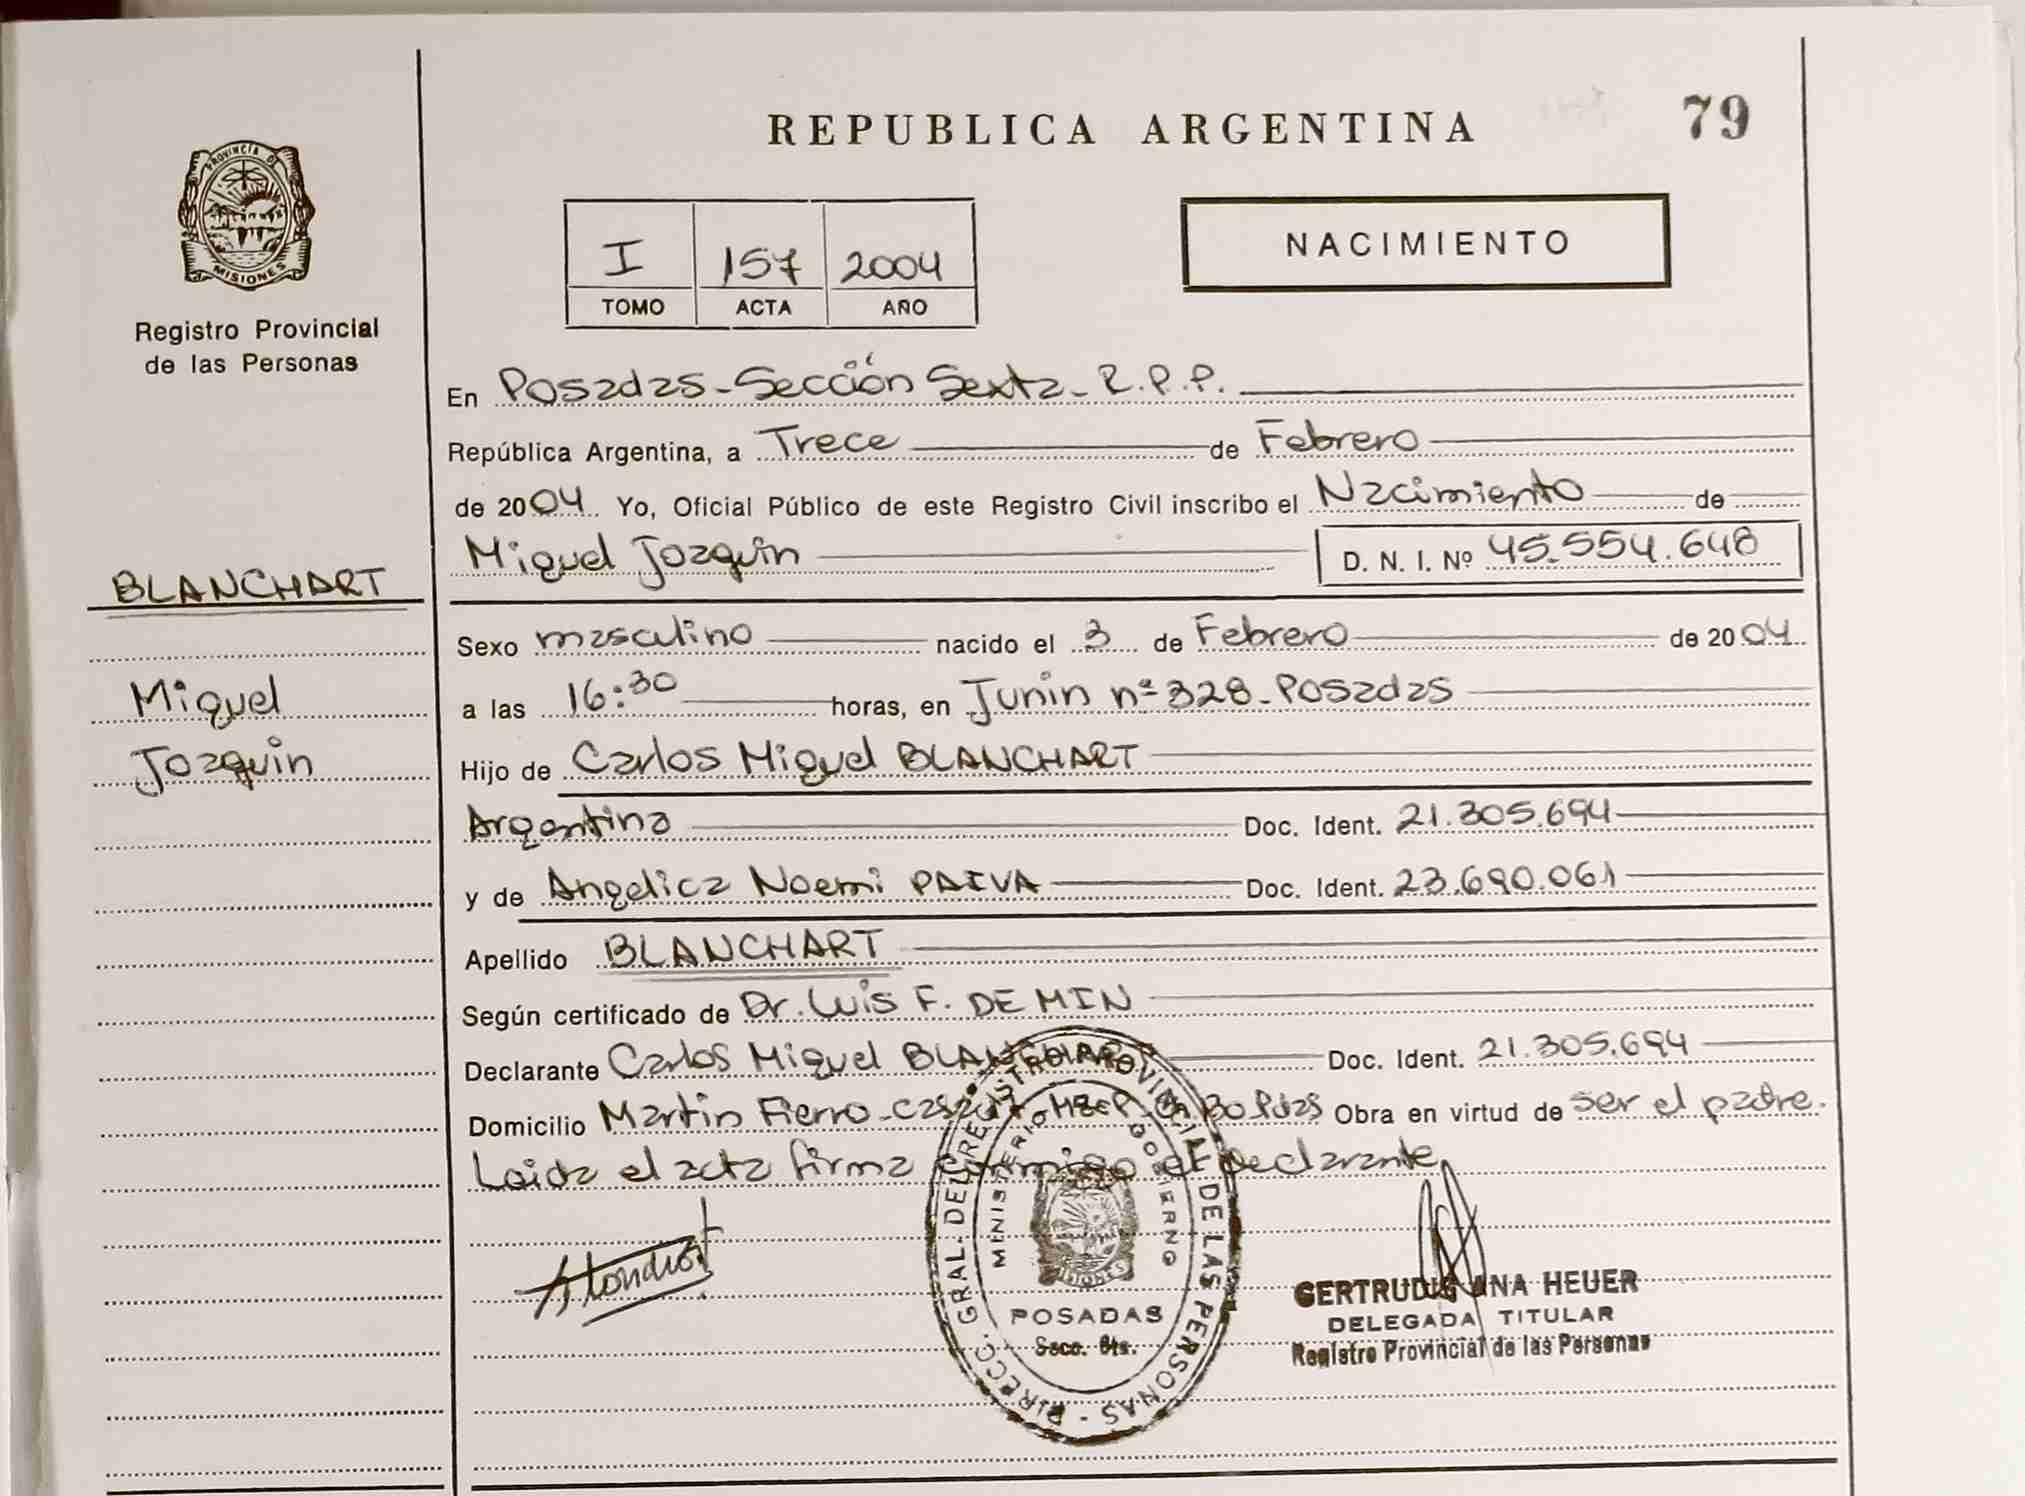 REPUBLICA ARGENTINA
79
PROVINCIA DE
MISIONES
Registro Provincial
de las Personas
I 157 2004
TOMO ACTA AÑO
NACIMIENTO
En Posadas - Sección Sexta - R.P.P.
República Argentina, a Trece de Febrero
de 2004 Yo, Oficial Público de este Registro Civil inscribo el Nacimiento de
Miguel Joaquin D. N. I. Nº 45.554.648
BLANCHART
Miguel
Joaquin
Sexo masculino nacido el 3 de Febrero de 2004
a las 16:30 horas, en Junin nº 328 - Posadas
Hijo de Carlos Miguel BLANCHART
Argentina Doc. Ident. 21.305.694
y de Angelica Noemi PAIVA Doc. Ident. 23.690.061
Apellido BLANCHART
Según certificado de Dr. Luis F. DE MIN
Declarante Carlos Miguel BLANCHART Doc. Ident. 21.305.694
Domicilio Martin Fierro - Pdas Obra en virtud de ser el padre.
Leida el acta firma conmigo el declarante
DIRECC. GRAL. DEL REGISTRO PROVINCIAL DE LAS PERSONAS
MINISTERIO DE GOBIERNO
MISIONES
POSADAS
Secc. 6ta.
GERTRUDIS ANA HEUER
DELEGADA TITULAR
Registro Provincial de las Personas